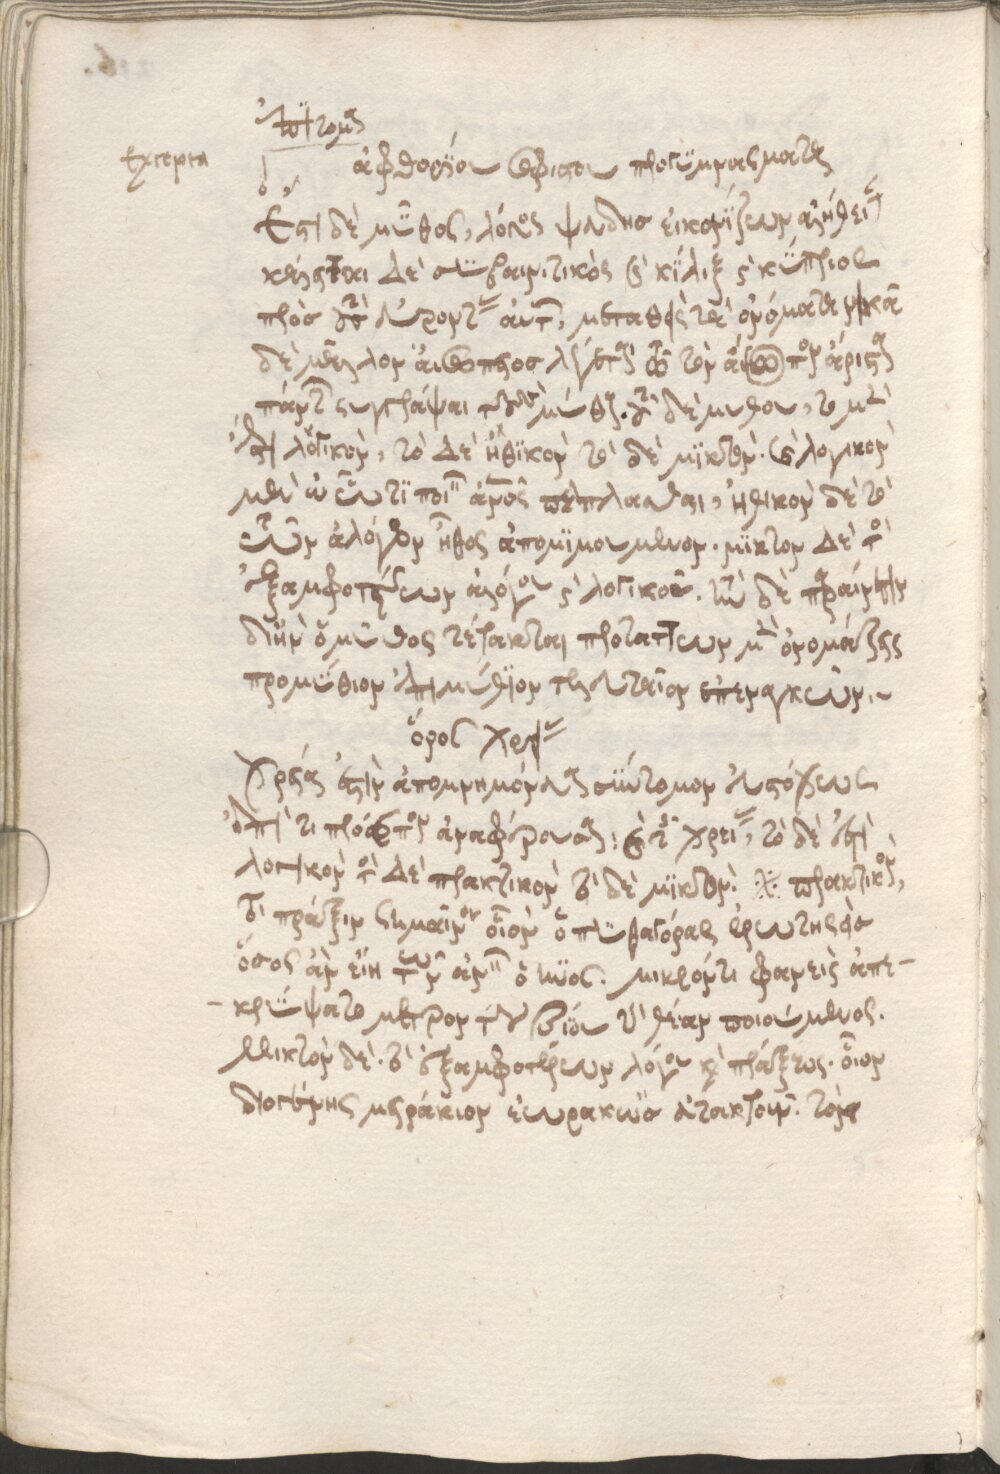 ἐπιτομὴ
Excerpta
ἀφθονίου σοφιστοῦ προγυμνάσματα
Ἔστι δὲ μῦθος, λόγος ψευδὴς εἰκονίζων ἀλήθειαν
καλεῖται δὲ συβαριτικὸς καὶ κίλιξ καὶ κύπριος
πρὸς τοὺς εὑρόντας αὐτὸν, μεταθεὶς τὰ ὀνόματα νικᾶ
δὲ μᾶλλον αἰσώπειος λέγεσθαι τῶ τὸν αἴσωπον ἄριστα
πάντων συγγράψαι τοὺς μύθους. τοῦ δὲ μύθου, τὸ μὲν
ἐστι λογικὸν, τὸ δὲ ἠθικὸν τὸ δὲ μικτὸν. καὶ λογικὸν
μὲν ὧ τι ποιῶν ἄνθρωπος πέπλασται, ἠθικὸν δὲ τὸ
τῶν ἀλόγων ἦθος ἀπομιμούμενον. μικτὸν δὲ τὸ
ἐξ ἀμφοτέρων ἀλόγου καὶ λογικοῦ. τὴν δὲ παραίνεσιν
δι' ἣν ὁ μῦθος τέτακται προτάττων μὲν ὀνομάσεις
προμύθιον ἐπιμύθιον τελευταῖον ἐπενεγκών.
ὅρος χρείας
Χρεία ἐστὶν ἀπομνημόνευμα σύντομον εὐστόχως
ἐπί τι πρόσωπον ἀναφέρουσα: καὶ τῆς χρείας, τὸ δέ ἐστι
λογικὸν τὸ δὲ πρακτικὸν τὸ δὲ μικτὸν. πρακτικὸν,
τὸ πρᾶξιν σημαῖνον οἷον ὁ πυθαγόρας ἐρωτηθεὶς
ὅσος ἂν εἴη τῶν ἀνθρώπων ὁ βίος. μικρόν τι φανεὶς ἀπε-
-κρύψατο μέτρον τοῦ βίου τὴν θέαν ποιούμενος.
Μικτὸν δὲ. τὸ ἐξ ἀμφοτέρων λόγου καὶ πράξεως. οἷον
διογένης μειράκιον ἑωρακὼς ἀτακτοῦν. τὸν